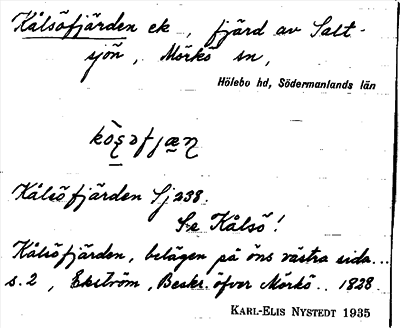 Kålsöfjärden ek., fjärd av Salt-
sjön, Mörkö sn,
Hölebo hd, Södermanlands län
Kålsöfjärden Sj 238.
Se Kålsö!
Kålsöfjärden, belägen på öns västra sida...
s. 2, Ekström, Beskr. öfver Mörkö.. 1828.
KARL-ELIS NYSTEDT 1935